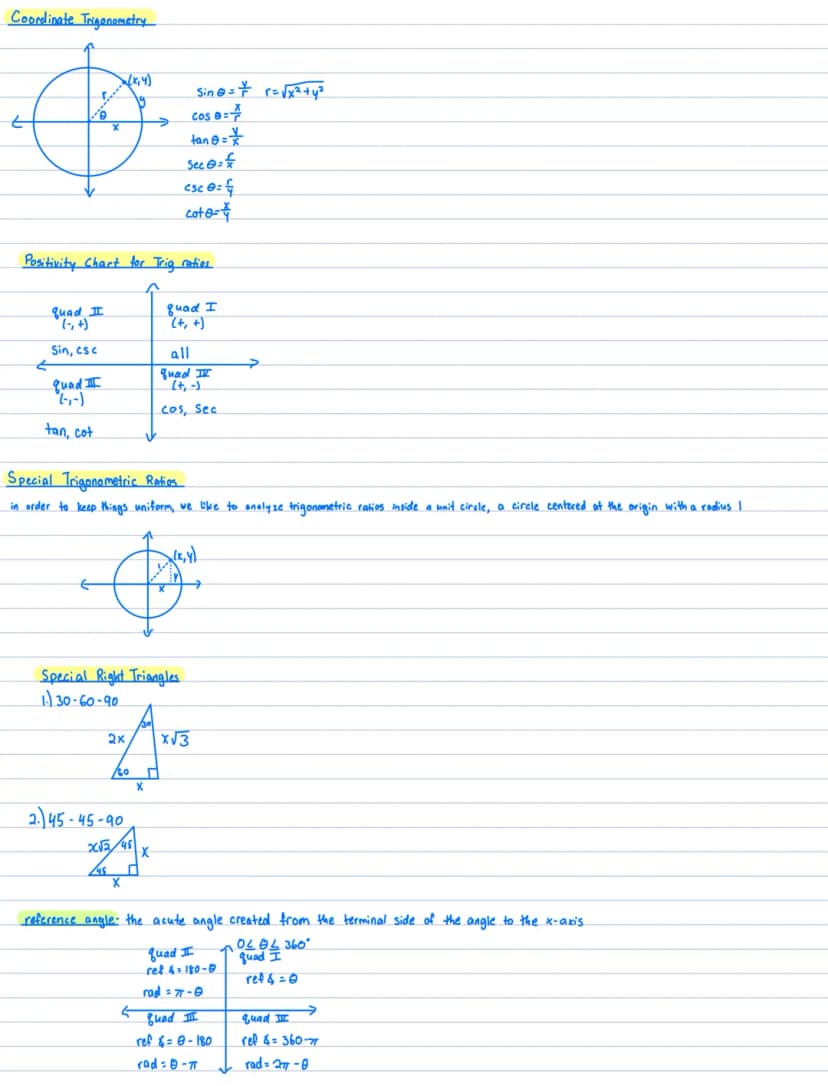 Coordinate Trigonometry
(x,y)
r
y
θ
x
sin θ = y/r r = √x²+y²
cos θ = x/r
tan θ = y/x
sec θ = r/x
csc θ = r/y
cot θ = x/y
Positivity Chart for Trig ratios
quad II quad I
(-, +) (+, +)
Sin, csc all
quad III quad IV
(-,-) (+, -)
tan, cot cos, Sec
Special Trigonometric Ratios
in order to keep things uniform, we like to analyze trigonometric ratios inside a unit circle, a circle centered at the origin with a radius 1
(x,y)
1
y
x
Special Right Triangles
1.) 30-60-90
30
2x x√3
60
x
2.) 45 - 45 - 90
x√2 45 x
45
x
reference angle: the acute angle created from the terminal side of the angle to the x-axis
0 ≤ θ ≤ 360°
quad II quad I
ref ∡ = 180 - θ ref ∡ = θ
rad = π - θ
quad III quad IV
ref ∡ = θ - 180 ref ∡ = 360-π
rad = θ - π rad = 2π - θ